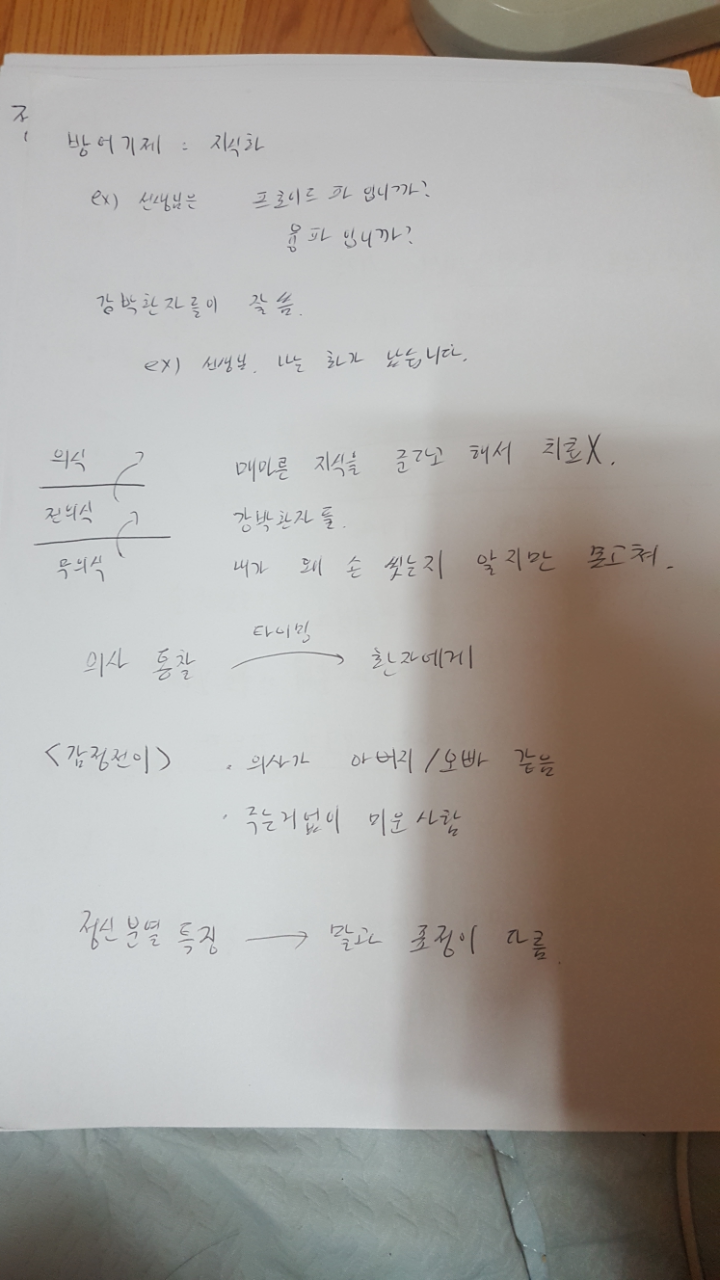 방어기제 : 지식화
ex) 선생님은 프로이드 파 입니까?
융파 입니까?
강박환자들이 잘 씀.
ex) 선생님. 나는 화가 났습니다.
의식
메마른 지식을 준다고 해서 치료X.
전의식
강박환자들.
무의식
내가 왜 손 씻는지 알지만 못고쳐.
타이밍
의사 통찰 → 환자에게
<감정전이> · 의사가 아버지/오빠 같음
· 주는거없이 미운사람
정신분열 특징 → 말과 표정이 다름.